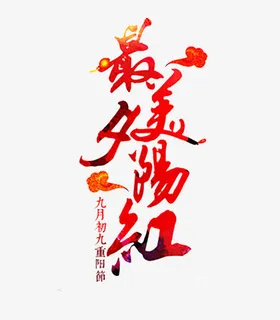 最美夕陽紅
九月初九重阳節